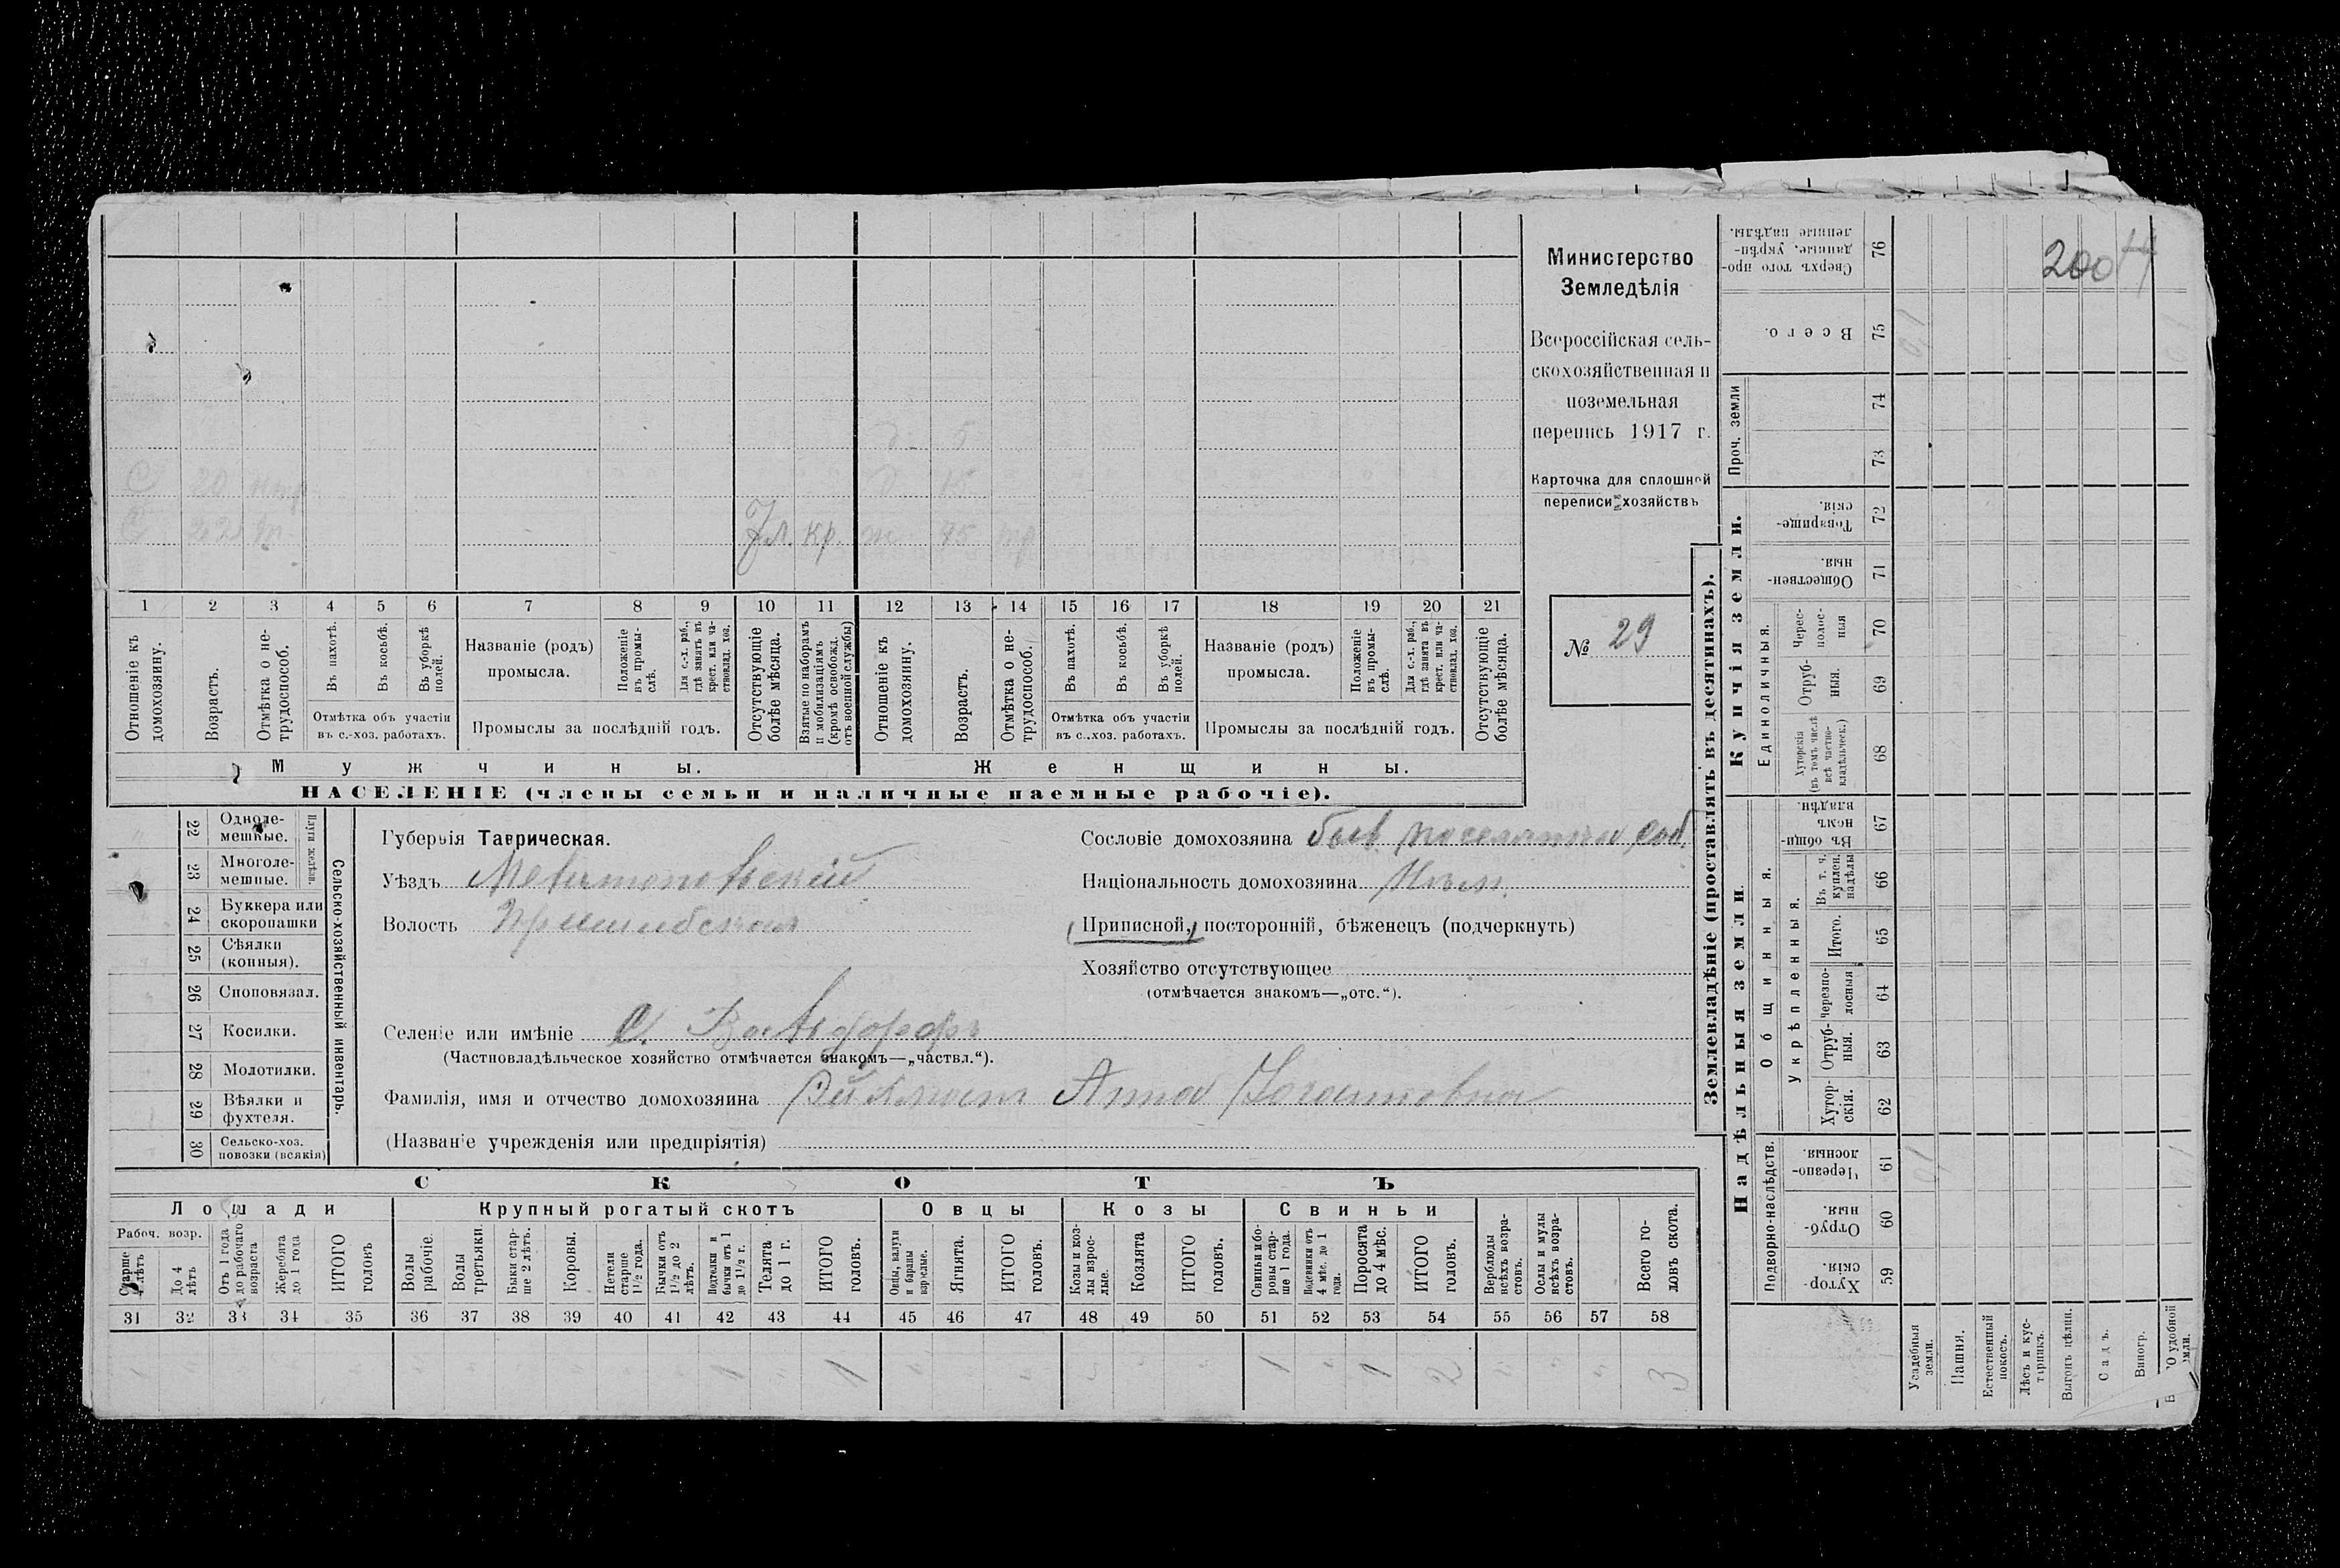 Министерство
Земледѣлія
Всероссійская сель-
скохозяйственная и
поземельная
перепись 1917 г.
Карточка для сплошной
переписи хозяйствъ
№ 29
д. 5
С 20 д 15
С 22 ж 45
1 2 3 4 5 6 7 8 9 10 11 12 13 14 15 16 17 18 19 20 21
Отношеніе къ домохозяину.
Возрастъ.
Отмѣтка о не-трудоспособ.
Въ пахотѣ.
Въ косьбѣ.
Въ уборкѣ полей.
Отмѣтка объ участіи
въ с.-хоз. работахъ.
Названіе (родъ)
промысла.
Положеніе въ промы-слѣ.
Для с.-х. раб., гдѣ занятъ въ крест. или ча-стновлад. хоз.
Промыслы за послѣдній годъ.
Отсутствующіе болѣе мѣсяца.
Взятые по наборамъ и мобилизаціямъ (кромѣ освобожд. отъ военной службы)
Отношеніе къ домохозяину.
Возрастъ.
Отмѣтка о не-трудоспособ.
Въ пахотѣ.
Въ косьбѣ.
Въ уборкѣ полей.
Отмѣтка объ участіи
въ с.-хоз. работахъ.
Названіе (родъ)
промысла.
Положеніе въ промы-слѣ.
Для с.-х. раб., гдѣ занята въ крест. или ча-стновлад. хоз.
Промыслы за послѣдній годъ.
Отсутствующіе болѣе мѣсяца.
Мужчины. Женщины.
НАСЕЛЕНІЕ (члены семьи и наличные наемные рабочіе).
22 Одноле-мешные.
23 Многоле-мешные.
Плуги желѣзн.
24 Буккера или скоропашки
25 Сѣялки (конныя).
26 Споповязал.
27 Косилки.
28 Молотилки.
29 Вѣялки и фухтеля.
30 Сельско-хоз. повозки (всякія)
Сельско-хозяйственный инвентарь.
Губернія Таврическая.
Уѣздъ Мелитопольскій
Волость Пришибская
Селеніе или имѣніе с. Вальдорфъ
(Частновладѣльческое хозяйство отмѣчается знакомъ—„частвл.“).
Фамилія, имя и отчество домохозяина Анна Іогановна
(Названіе учрежденія или предпріятія)
Сословіе домохозяина быв. поселянка соб.
Національность домохозяина Нѣм.
Приписной, посторонній, бѣженецъ (подчеркнуть)
Хозяйство отсутствующее
(отмѣчается знакомъ—„отс.“).
СКОТЪ
Лошади Крупный рогатый скотъ Овцы Козы Свиньи
Рабоч. возр.
Старше 4 лѣтъ
До 4 лѣтъ
Отъ 1 года до рабочаго возраста
Жеребята до 1 года
ИТОГО головъ
Волы рабочіе.
Волы третьяки.
Быки стар-ше 2 лѣтъ.
Коровы.
Нетели старше 1½ года.
Бычки отъ 1½ до 2 лѣтъ.
Подтелки и бычки отъ 1 до 1½ г.
Телята до 1 г.
ИТОГО головъ.
Овцы, валухи и бараны взрослые.
Ягнята.
ИТОГО головъ.
Козы и коз-лы взрос-лые.
Козлята
ИТОГО головъ.
Свиньи и бо-ровы стар-ше 1 года.
Подсвинки отъ 4 мѣс. до 1 года.
Поросята до 4 мѣс.
ИТОГО головъ.
Верблюды всѣхъ возра-стовъ.
Ослы и мулы всѣхъ возра-стовъ.
Всего го-ловъ скота.
31 32 33 34 35 36 37 38 39 40 41 42 43 44 45 46 47 48 49 50 51 52 53 54 55 56 57 58
1 1 1 1 2 3
Землевладѣніе (проставлять въ десятинахъ).
Надѣльныя земли Купчія земли.
Проч. земли
Подворно-наслѣдств.
Общинныя.
Укрѣпленныя.
Единоличныя.
Сверхъ того про-данные, укрѣп-ленные надѣлы. 76
Всего. 75
74
73
Товарище-скія. 72
Обществен-ныя. 71
Черес-полос-ныя 70
Отруб-ныя. 69
Хуторскія (въ томъ числѣ всѣ частно-владѣльческ.) 68
Въ общин-номъ владѣн. 67
Въ т. ч. куплен. надѣлы 66
Итого. 65
Черезпо-лосныя 64
Отруб-ныя. 63
Хутор-скія. 62
Черезпо-лосныя. 61
Отруб-ныя. 60
Хутор-скія. 59
Усадебныя земли.
Пашня.
Естественный покосъ.
Лѣсъ и кус-тарникъ.
Выгонъ цѣлин.
Садъ.
Виногр.
О удобной земли.
200